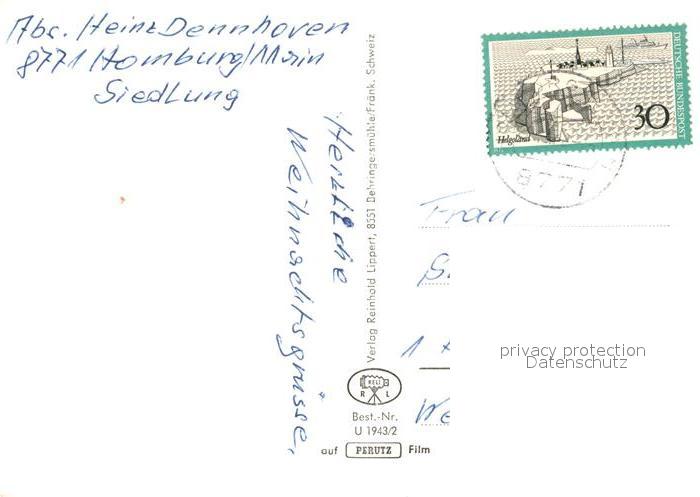 Abs. Heinz Dennhoven
8771 Homburg/Main
Siedlung
Herzliche
Weihnachtsgrüsse,
Verlag Reinhold Lippert, 8551 Dehringersmühle/Fränk. Schweiz
RELI
R L
Best.-Nr.
U 1943/2
auf PERUTZ Film
DEUTSCHE BUNDESPOST
Helgoland
30
8771
Frau
S.
1
We
privacy protection
Datenschutz